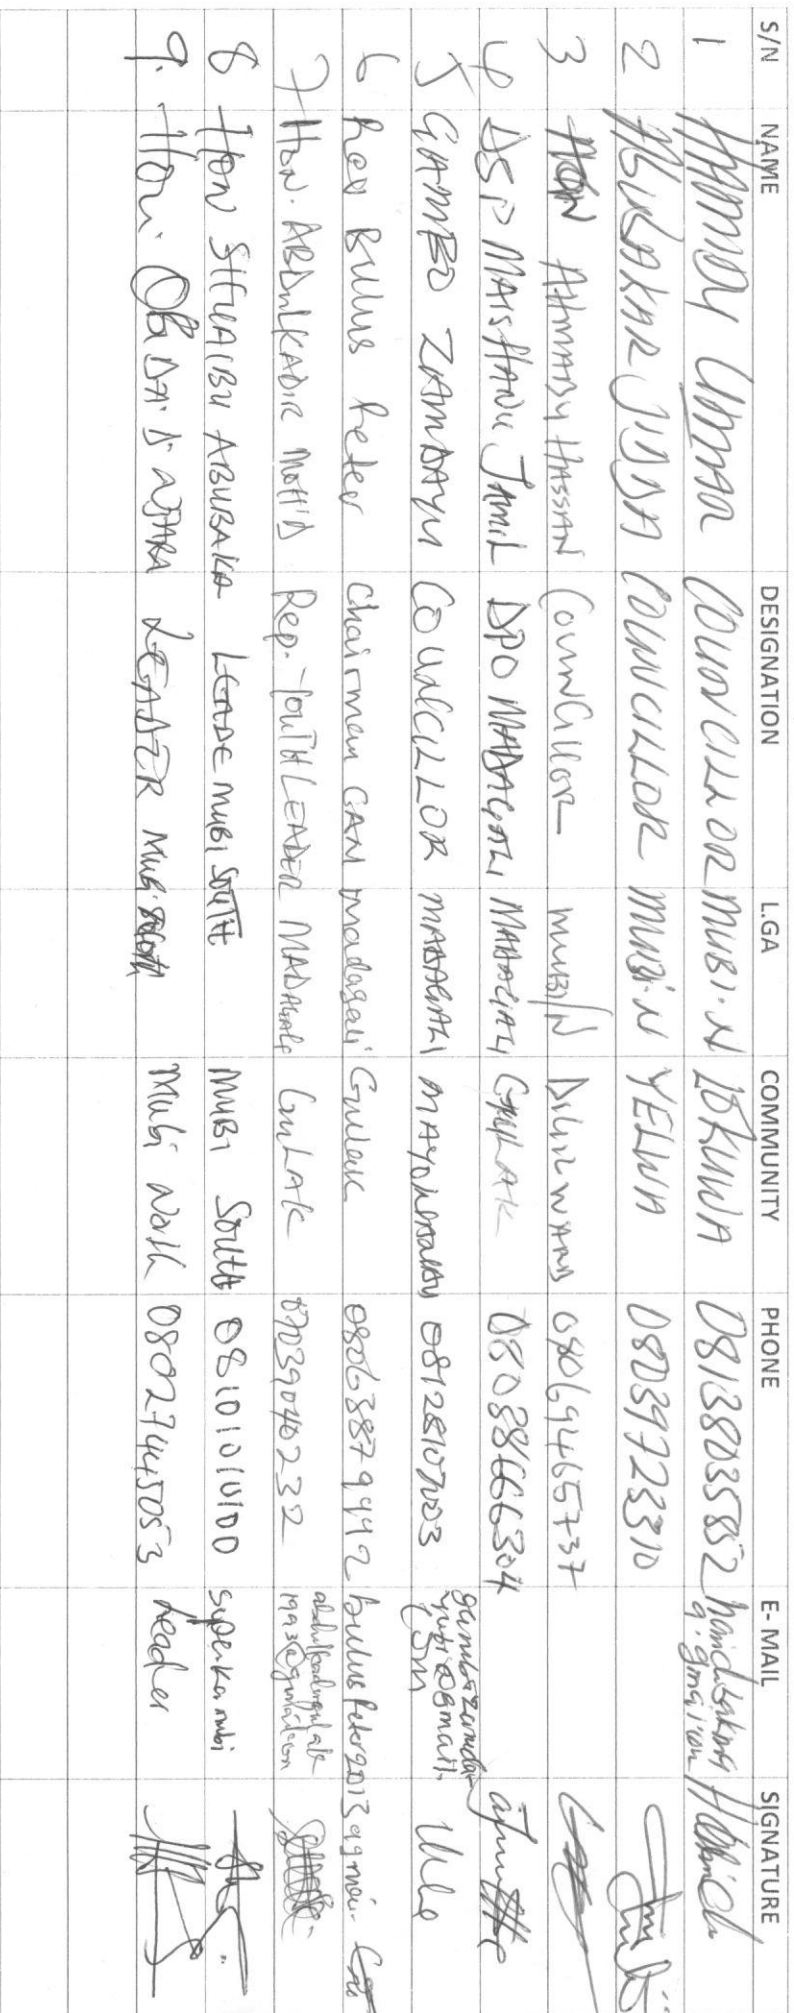 S/N NAME DESIGNATION L.GA COMMUNITY PHONE E- MAIL SIGNATURE
1 HAMIDU UMAR COUNCILLOR MUBI-N LOKUWA 08138035852
2 ABUBAKAR JIDDA COUNCILLOR MUBI-N YELWA 08039723310
3 HON AHMADU HASSAN COUNCILLOR MUBI/N 08069465737
4 DSP MAISHANU JAMIL DPO MADAGALI MADAGALI GULAK 08038666304
5 GAMBO ZAMDAYU COUNCILLOR MADAGALI 08128107003
6 Rev Bulus Peter Chairman CAN Madagali Gulak 08063879992 bulus Peter2013@gmai.
7 HON. ABDULKADIR MOH'D Rep. YOUTH LEADER MADAGALI GULAK 07039040232 abdulkadirgulak
8 HON SHUAIBU ABUBAKA LEADE MUBI SOUTH MUBI SOUTH 08101010100 superkamubi
9. Hon. LEADER Mubi South Mubi North 08027445053 Leader